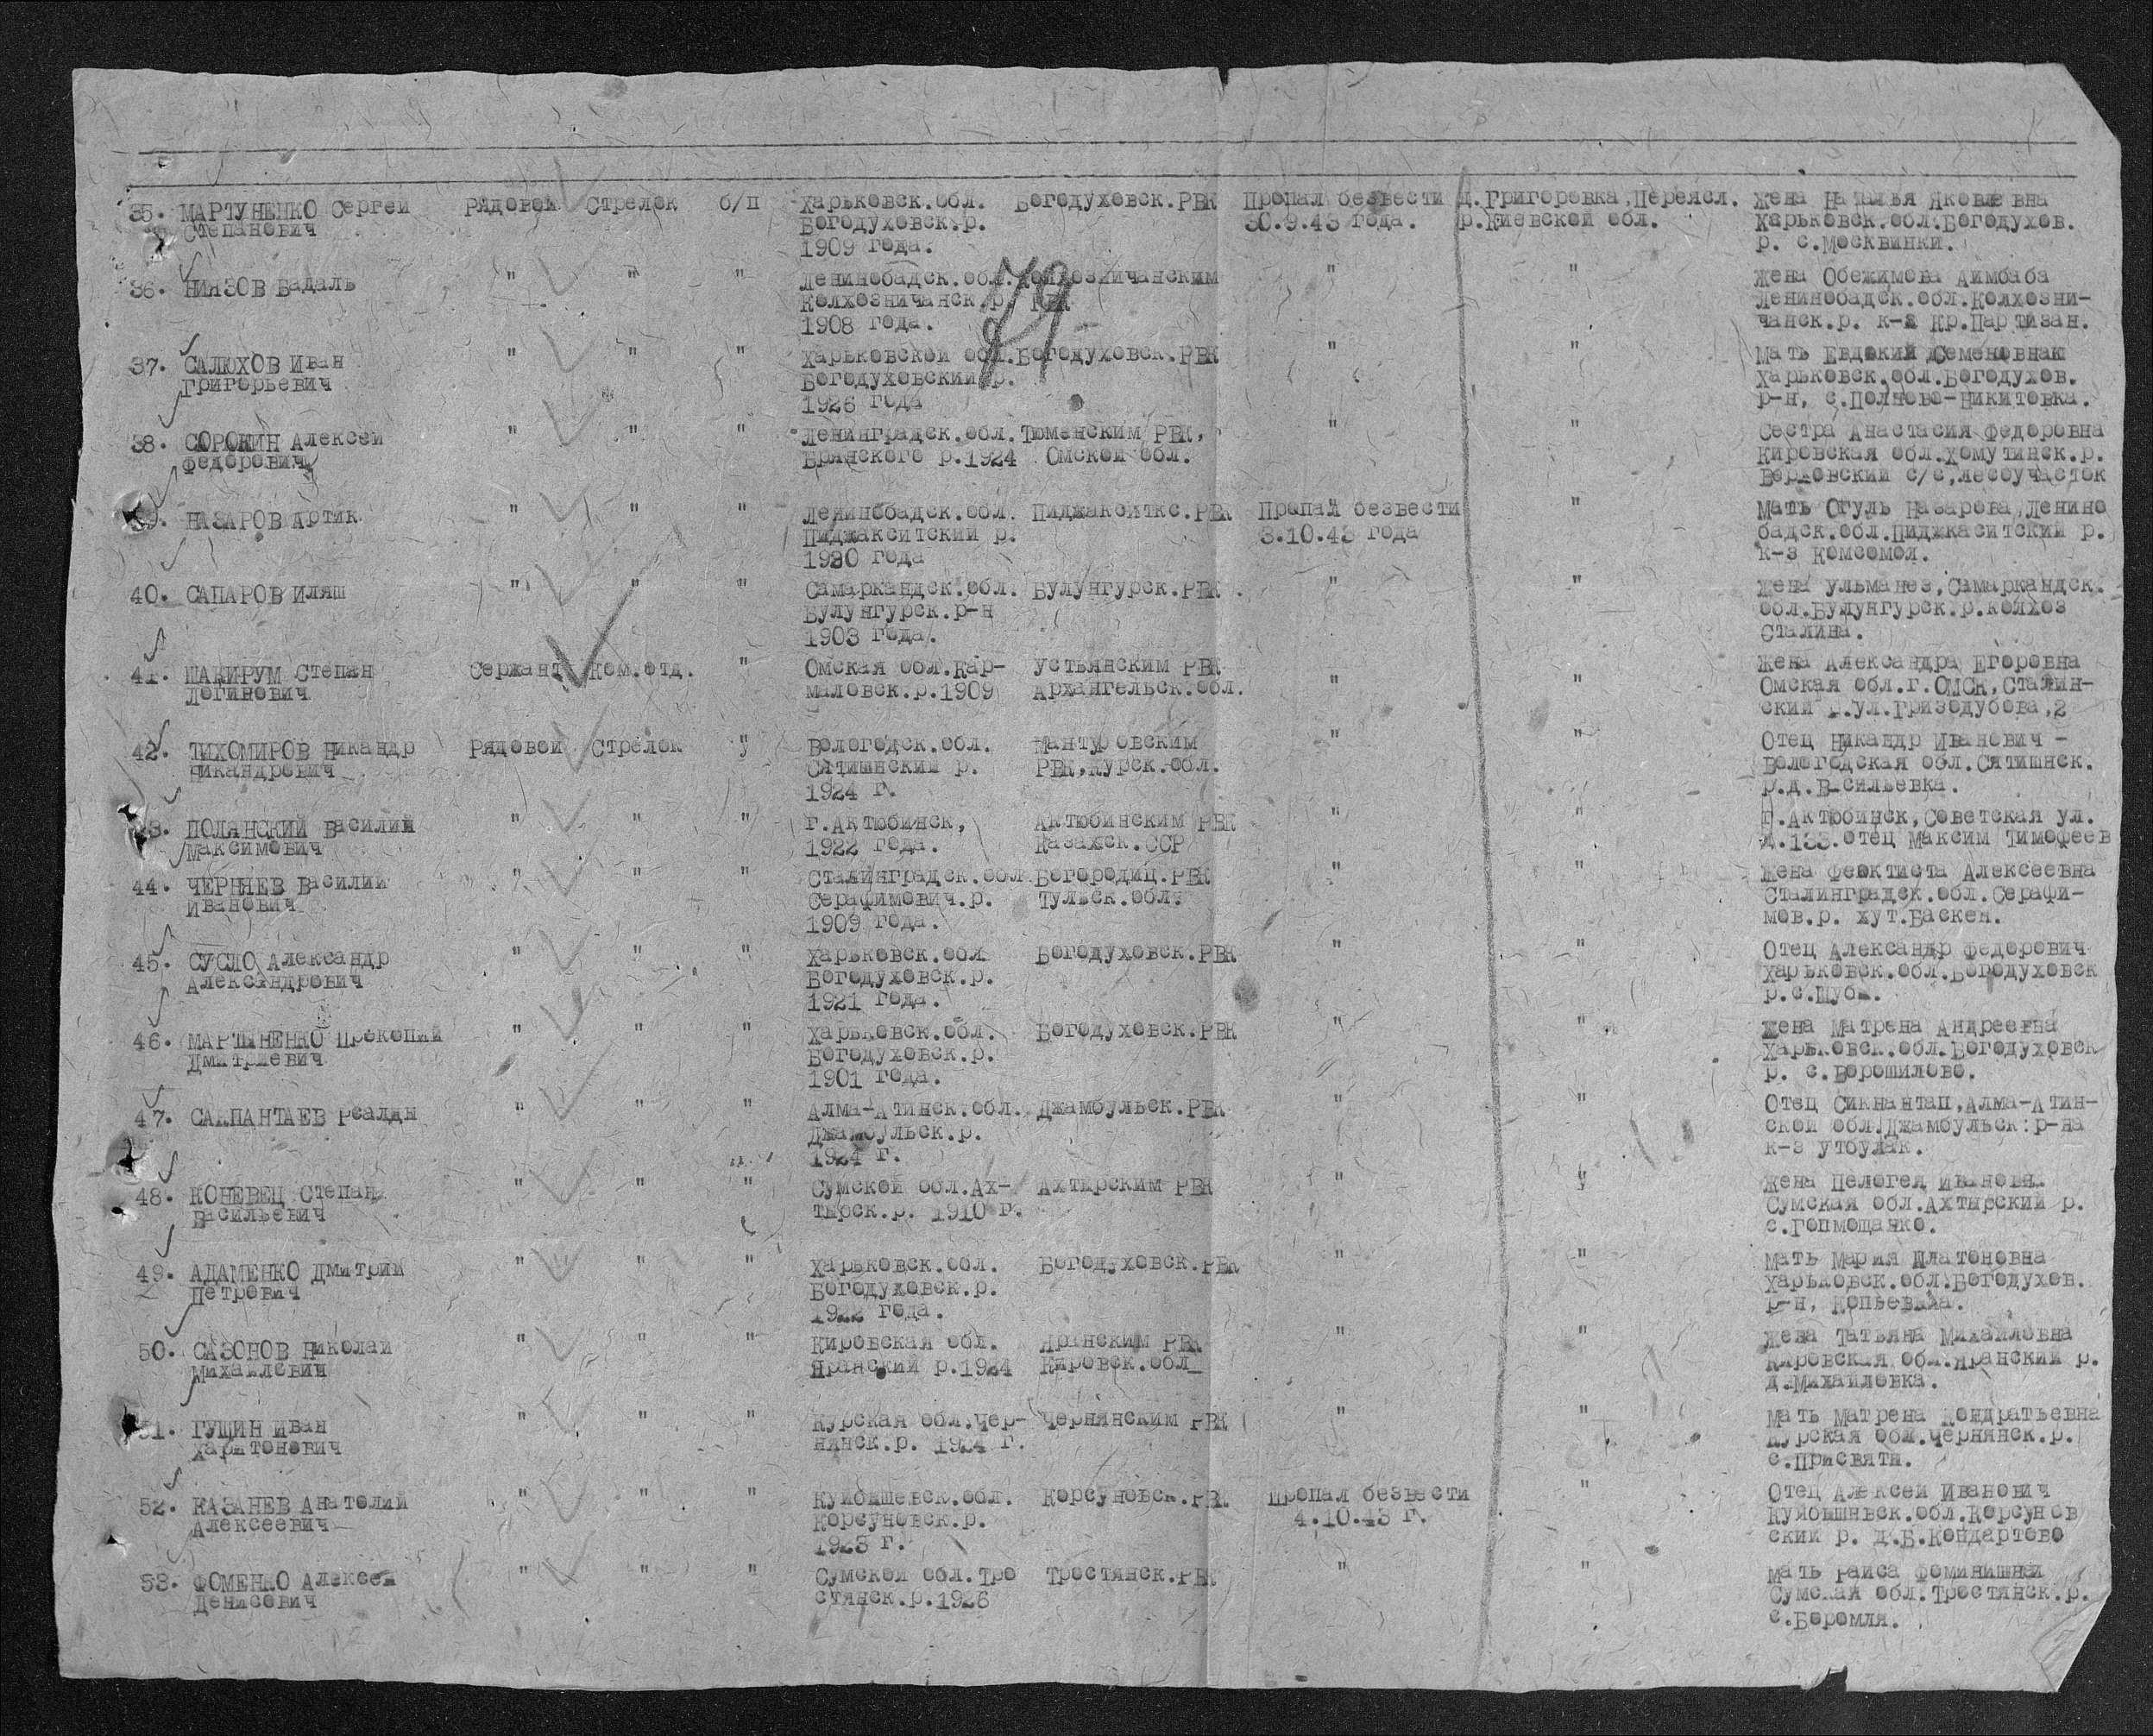 35. МАРТУНЕНКО Сергей Рядовой Стрелок б/п Харьковск.обл. Богодуховск.РВК Пропал безвести д.Григоровка,Переясл. жена Наталья Яковлевна
Степанович Богодуховск.р. 30.9.43 года. р.Киевской обл. Харьковск.обл.Богодухов.
1909 года. р. с.Москвинки.
36. НИЯЗОВ Бадаль " " " Ленинобадск.обл.Колхозничанским " " жена Обежимова Аимбаба
Колхозничанск.р. РВК Ленинобадск.обл.Колхозни-
1908 года. чанск.р. к-з Кр.Партизан.
79
37. САЛЮХОВ Иван " " " Харьковской обл.Богодуховск.РВК " " Мать Евдокий Семеновнаи
Григорьевич Богодуховский р. Харьковск.обл.Богодухов.
1926 года р-н, с.Полново-Никитовка.
38. СОРОКИН Алексей " " " Ленинградск.обл.Тюменским РВК, " " Сестра Анастасия Федоровна
Федорович Брянского р.1924 Омской обл. Кировская обл.Хомутинск.р.
Верховский с/с,лесоучасток
39. НАЗАРОВ Артик " " " Ленинобадск.обл. Пиджакситкс.РВК Пропал безвести " Мать Огуль Назарова,Ленино
Пиджакситский р. 3.10.43 года бадск.обл.Пиджкаситский р.
1930 года к-з Комсомол.
40. САПАРОВ Иляш " " " Самаркандск.обл. Булунгурск.РВК " " жена Ульманез,Самаркандск.
Булунгурск.р-н обл.Булунгурск.р.колхоз
1903 года. Сталина.
41. ШАКИРУМ Степан Сержант Ком.отд. " Омская обл.Кар- Устьянским РВК " " жена Александра Егоровна
Логинович маловск.р.1909 Архангельск.обл. Омская обл.г.ОМСК,Сталин-
ский р.ул.Гризодубова,2
42. ТИХОМИРОВ Никандр Рядовой Стрелок " Вологодск.обл. Мантуровским " " Отец Никандр Иванович -
Никандрович Сятишнский р. РВК,Курск.обл. Вологодская обл.Сятишнск.
1924 г. р.д.Васильевка.
43. ПОЛЯНСКИЙ Василий " " " г.Актюбинск, Актюбинским РВК " " Г.Актюбинск,Советская ул.
Максимович 1922 года. Казахск.ССР д.133.отец Максим Тимофеев
44. ЧЕРНЯЕВ Василий " " " Сталинградск.обл.Богородиц.РВК " " жена Феоктиста Алексеевна
Иванович Серафимович.р. Тульск.обл. Сталинградск.обл.Серафи-
1909 года. мов.р. хут.Баскен.
45. СУСЛО Александр " " " Харьковск.обл Богодуховск.РВК " " Отец Александр Федорович
Александрович Богодуховск.р. Харьковск.обл.Богодуховск
1921 года. р.с.Шуба.
46. МАРТЫНЕНКО Прокопий " " " Харьковск.обл. Богодуховск.РВК " " жена Матрена Андреевна
Дмитриевич Богодуховск.р. Харьковск.обл.Богодуховск
1901 года. р. с.Ворошилово.
47. САКПАНТАЕВ Рсалды " " " Алма-Атинск.обл. Джамбульск.РВК " " Отец Сикнантап,Алма-Атин-
Джамбульск.р. ской обл.Джамбульск.р-на
1924 г. к-з Утбулак.
48. КОНЕВЕЦ Степан " " " Сумской обл.Ах- Ахтырским РВК " " жена Пелогея Ивановна
Васильевич тырск.р. 1910 г. Сумская обл.Ахтырский р.
с.Гопмощанко.
49. АДАМЕНКО Дмитрий " " " Харьковск.обл. Богодуховск.РВК " " мать Мария Платоновна
Петрович Богодуховск.р. Харьковск.обл.Богодухов.
1922 года. р-н, Копьеваха.
50. САЗОНОВ Николай " " " Кировская обл. Яранским РВК " " жена Татьяна Михайловна
Михайлович Яранский р.1924 Кировск.обл Кировская обл.Яранский р.
д.Михайловка.
51. ГУЩИН Иван " " " Курская обл.Чер- Чернянским РВК " " мать Матрена Кондратьевна
Харитонович нянск.р. 1924 г. Курская обл.Чернянск.р.
с.Присвяти.
52. КАЗАНЕВ Анатолий " " " Куйбышевск.обл. Корсуновск.РВК Пропал безвести " Отец Алексей Иванович
Алексеевич Корсуновск.р. 4.10.43 г. Куйбышнвск.обл.Корсунов
1923 г. ский р. д.Б.Кондартово
53. ФОМЕНКО Алексей " " " Сумской обл.Тро Тростянск.РВК " " мать Раиса Фоминишнаи
Денисович стянск.р.1926 Сумская обл.Тростянск.р.
с.Боромля.